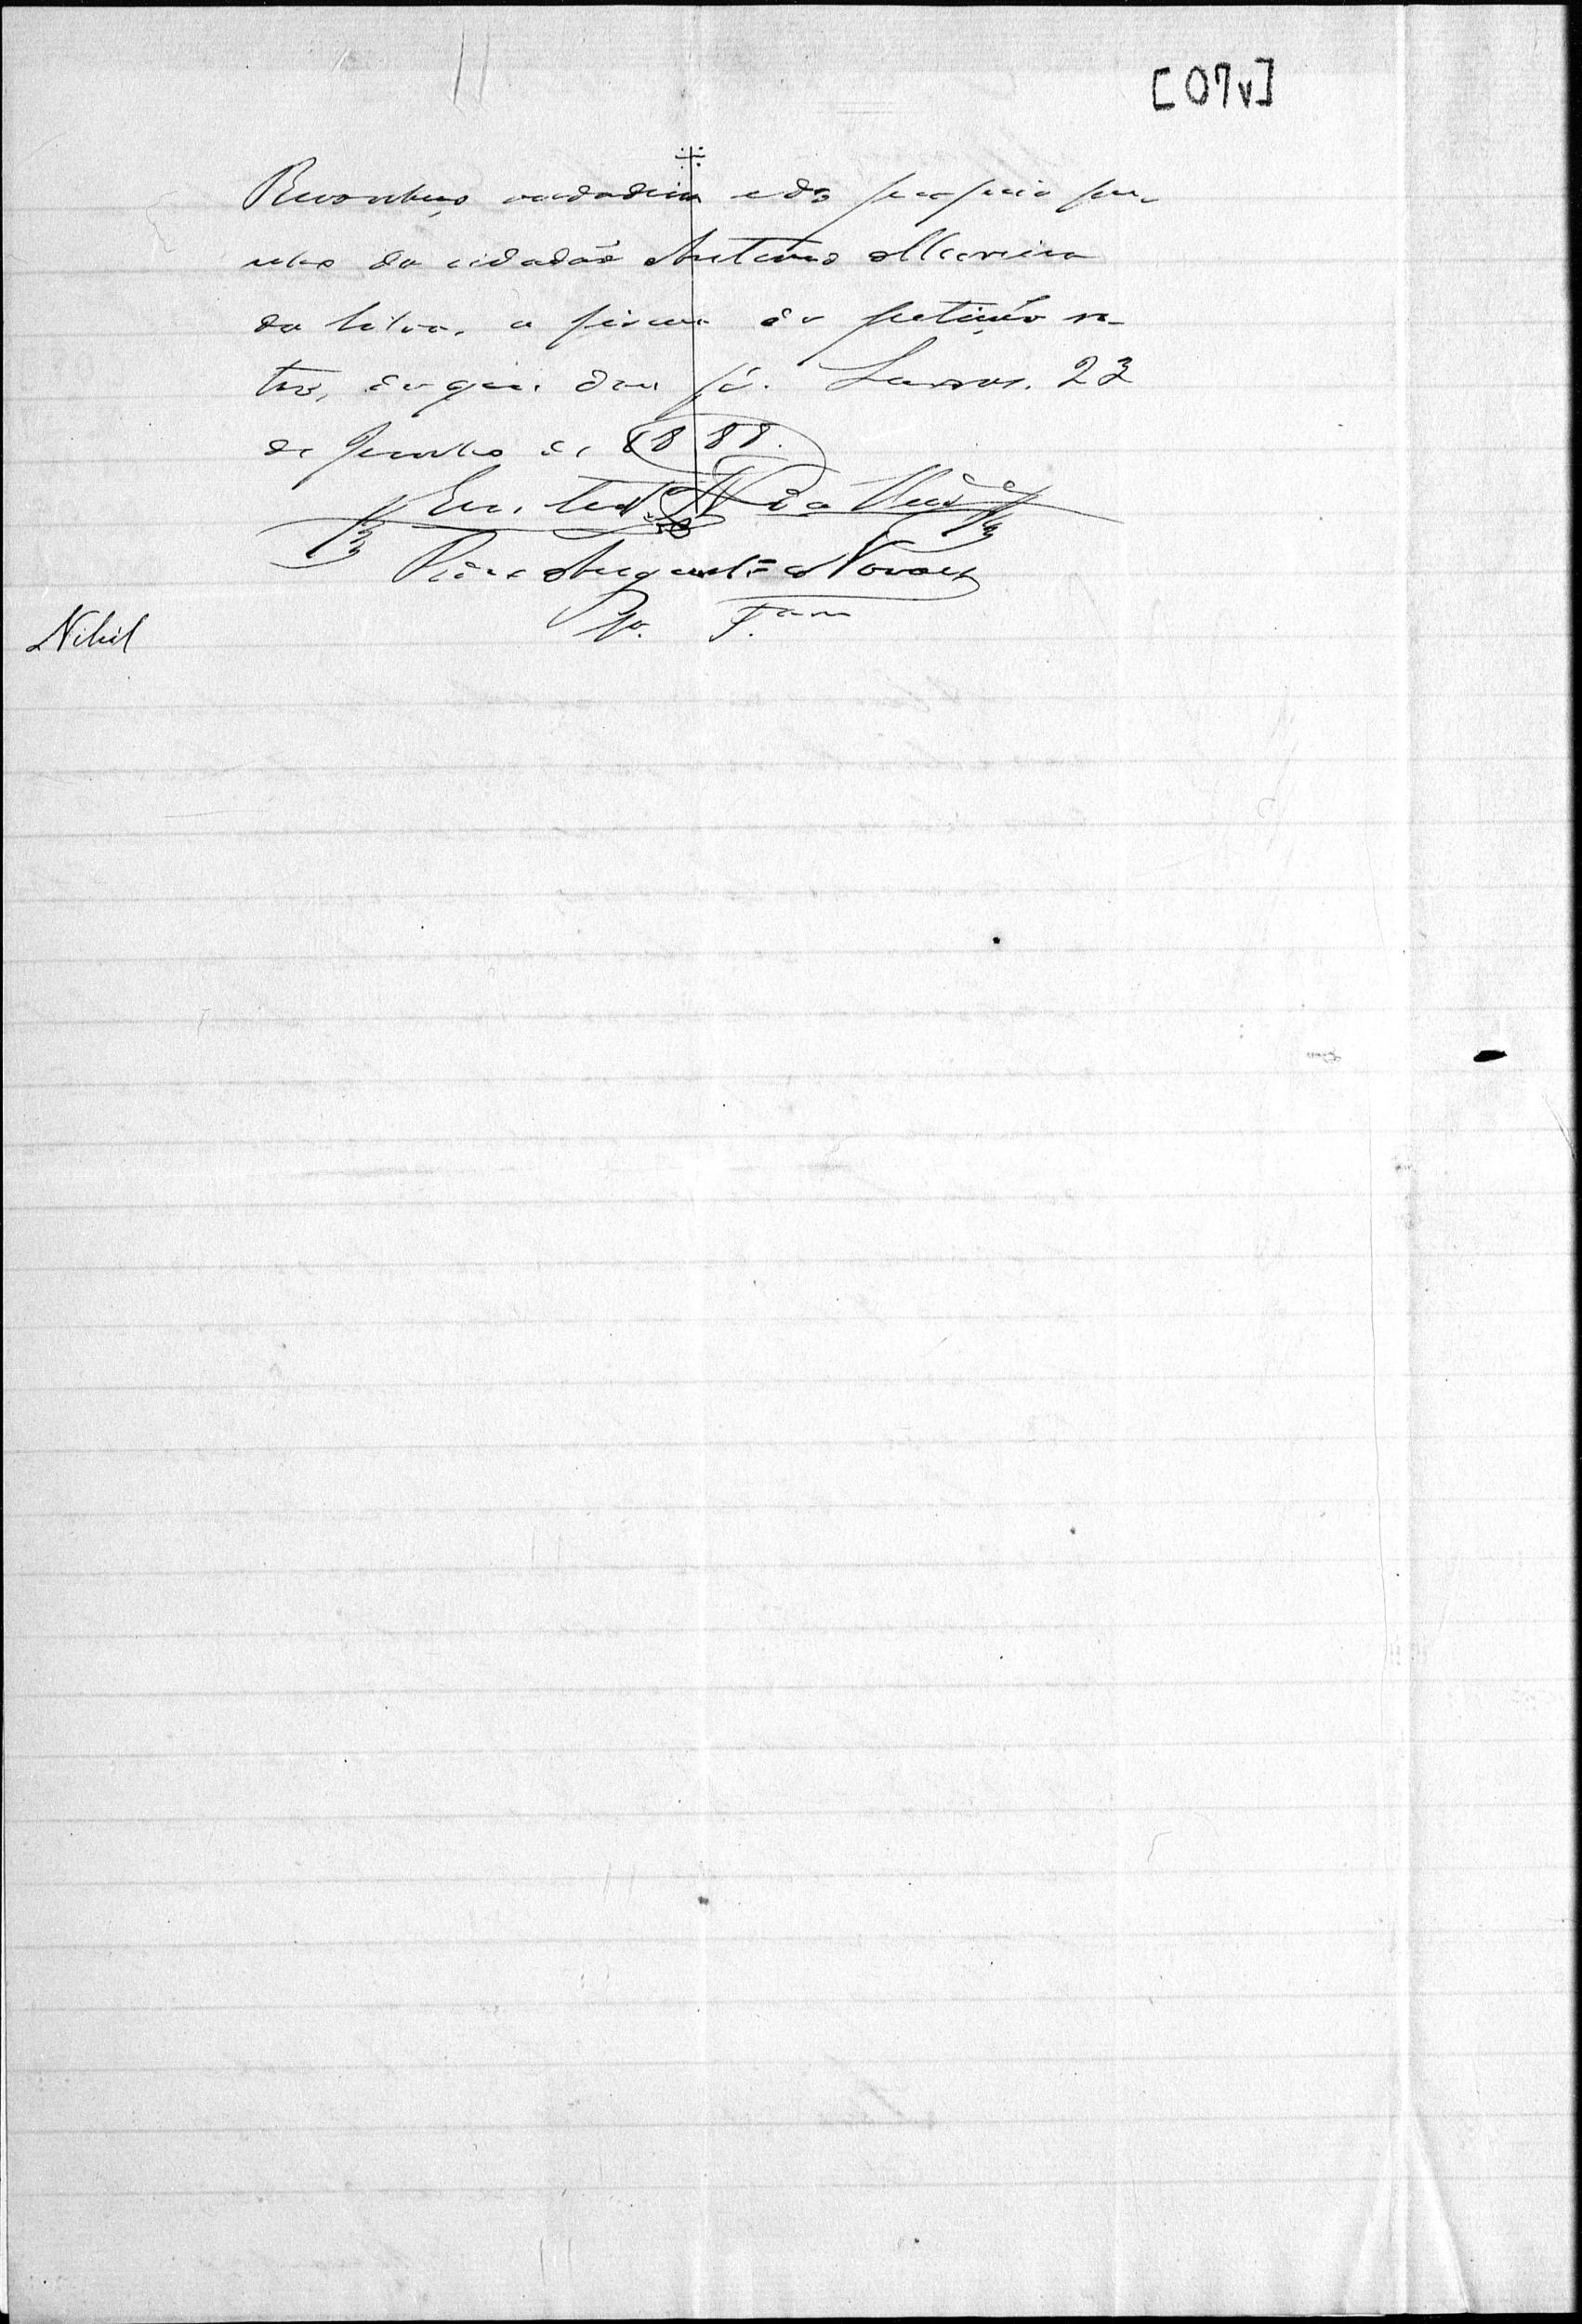 [07v]
Reconheço verdadeira e do proprio pu-
nho do cidadão Antonio Moreira
da Silva, a firma da petição re-
tro, do que dou fé. Lavras, 23
de Junho de 1888.
Em test.º da Verd.e
Augusto Novaes
Nihil